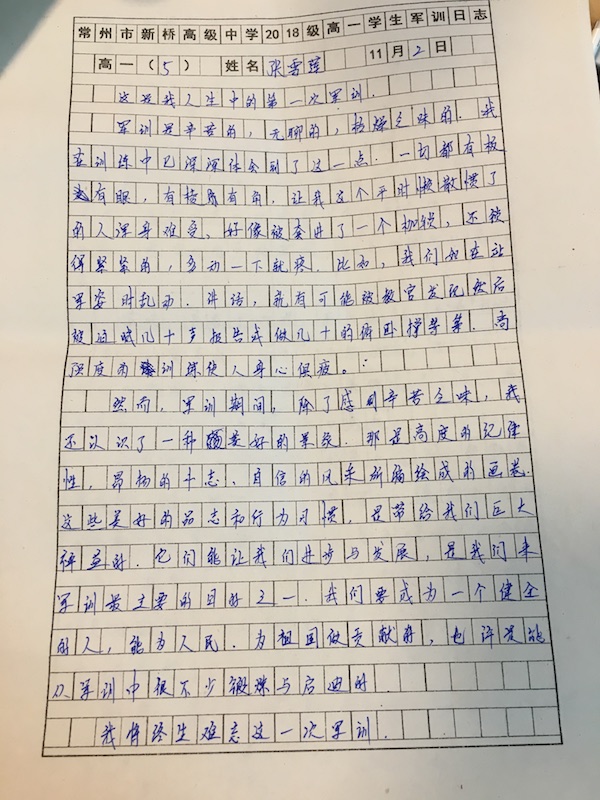 常州市新桥高级中学2018级高一学生军训日志
高一（5） 姓名 张雪莲 11月2日
这是我人生中的第一次军训.
军训是辛苦的，无聊的，枯燥乏味的.我
在训练中已深深体会到了这一点.一切都有板
有眼，有棱有角.让我这个平时懒散惯了
的人浑身难受、好像被套进了一个枷锁，还被
得紧紧的，多动一下就疼.比如，我们如在站
军姿时乱动.讲话，就有可能被教官发现然后
被迫喊几十声报告或做几十的俯卧撑等等.高
强度的训练使人身心俱疲。
然而，军训期间，除了感到辛苦之味，我
还认识了一种美好的景象.那是高度的纪律
性，昂扬的斗志、自信的风采所描绘成的画卷.
这些美好的品志和行为习惯，是带给我们巨大
裨益的.它们能让我们进步与发展，是我们来
军训最主要的目的之一.我们要成为一个健全
的人，能为人民.为祖国做贡献的，也许是能
从军训中得不少锻炼与启迪的.
我将终生难忘这一次军训.